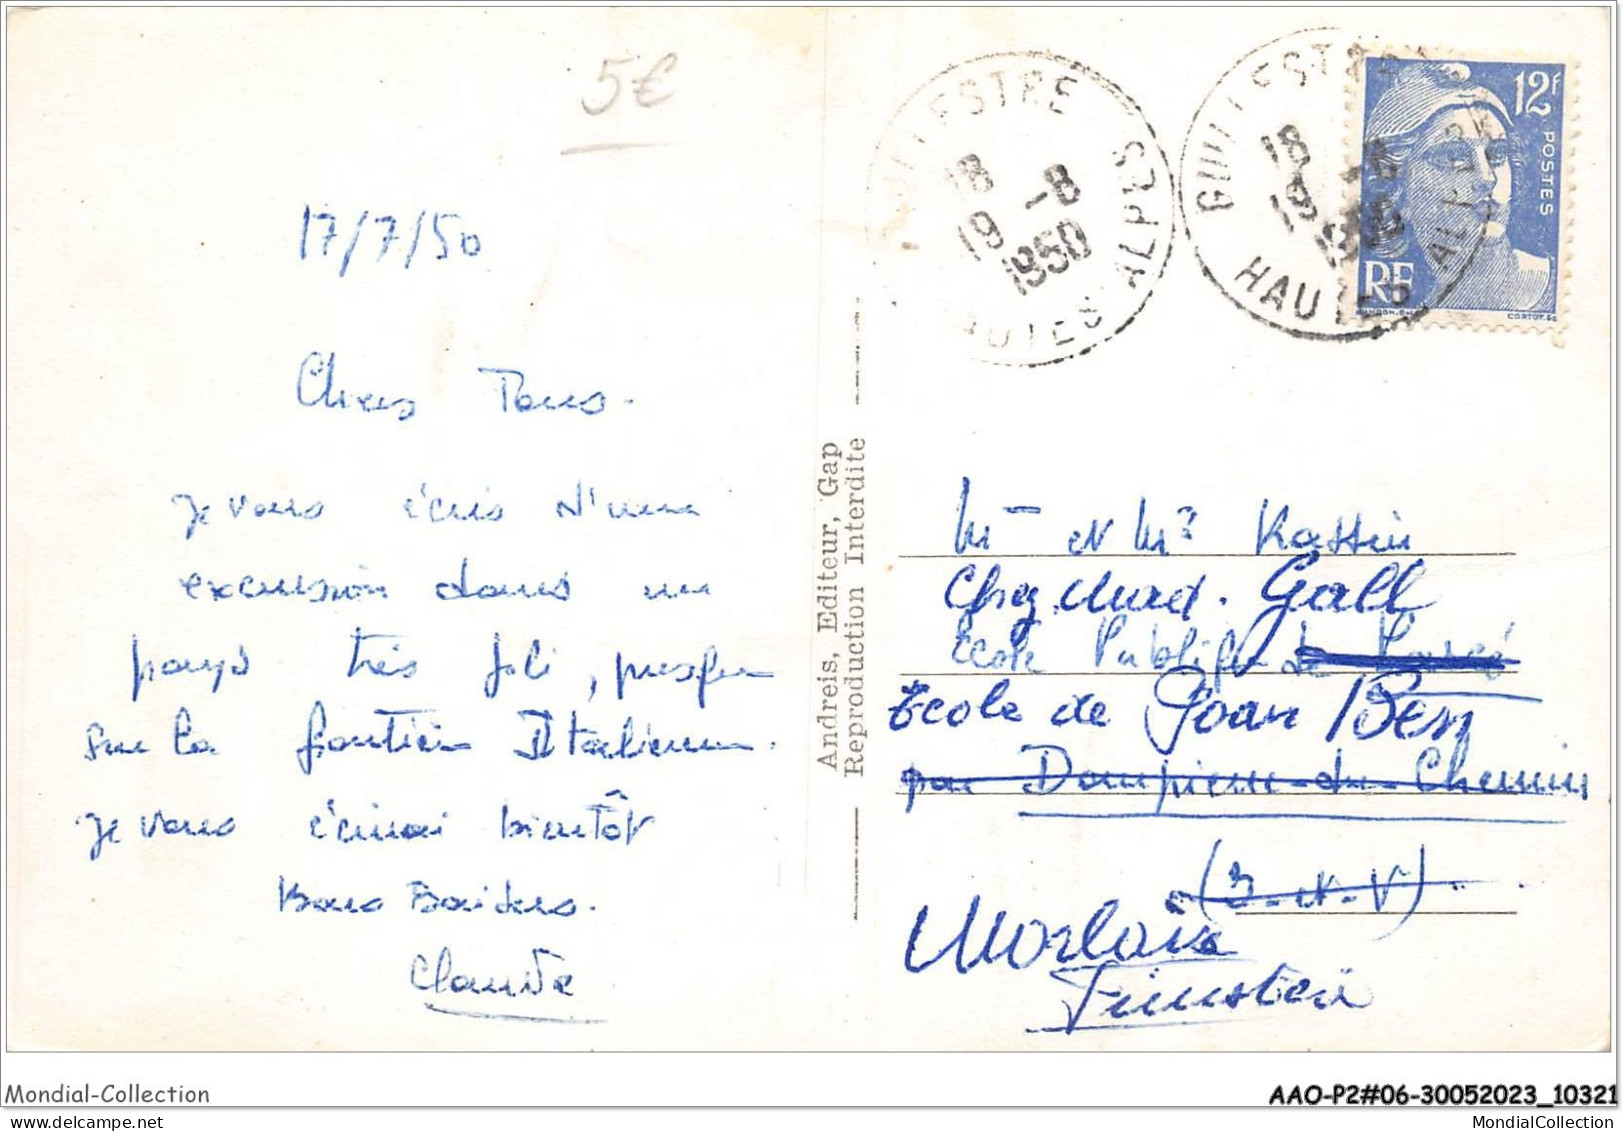 5€
17/7/50
Chers Tous.
Je vous écris d'une
excursion dans un
pays très joli, presque
sur la frontière Italienne.
Je vous écrirai bientôt
Bons Baisers.
Claude
Andreis, Editeur, Gap
Reproduction Interdite
GUILLESTRE
18
19 -8
1950
HAUTES ALPES
GUILLESTRE
18
19 -8
1950
HAUTES ALPES
12F
POSTES
RF
CORTOT. SC
Mr et Me
Chez Mad. Gall
Ecole Publique de
Ecole de Poan Ben
par Dompierre-du-Chemin
(I-et-V)
Morlaix
Finistère
Mondial-Collection
AAO-P2#06-30052023_10321
MondialCollection.com